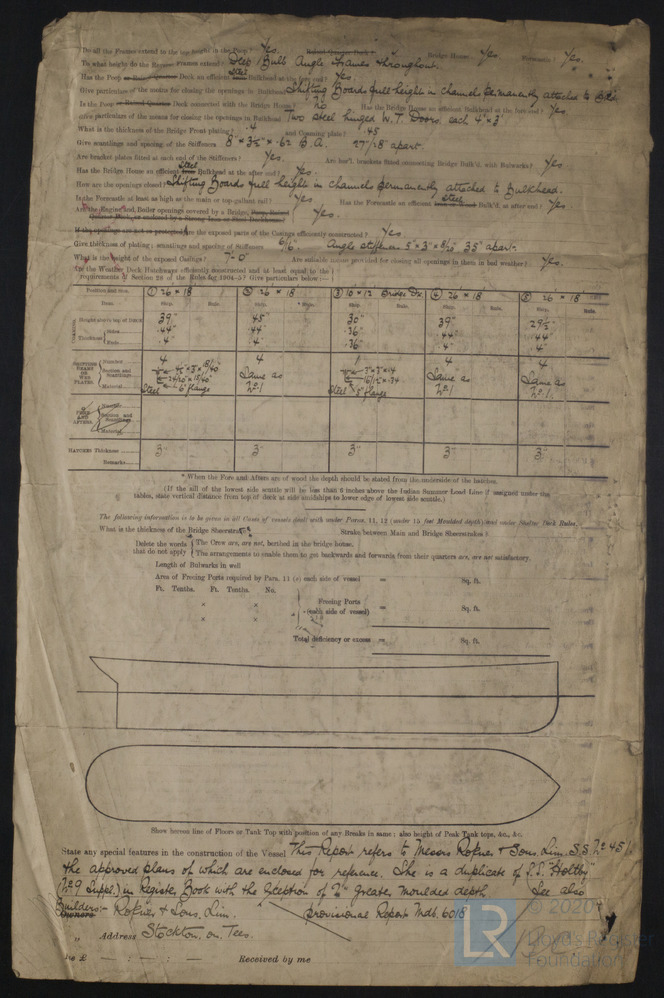 Do all the Frames extend to the top height in the Poop? Yes. Raised Quarter Deck? Bridge House Yes Forecastle? Yes.
To what height do the Reverse Frames extend? Deep Bulb Angle Frames throughout.
Has the Poop or Raised Quarter Deck an efficient Steel Bulkhead at the fore end? Yes
Give particulars of the means for closing the openings in Bulkhead Shifting Boards full height in channels permanently attached to Bhd.
Is the Poop or Raised Quarter Deck connected with the Bridge House? No Has the Bridge House an efficient Bulkhead at the fore end? Yes
Give particulars of the means for closing the openings in Bulkhead Two steel hinged W.T. Doors each 4' × 3'
What is the thickness of the Bridge Front plating? .4 and Coaming plate? .45
Give scantlings and spacing of the Stiffeners 8" × 3½" × .62 B.A. 27"/28" apart.
Are bracket plates fitted at each end of the Stiffeners? Yes. Are hor'l. brackets fitted connecting Bridge Bulk'd. with Bulwarks? Yes.
Has the Bridge House an efficient Steel Iron Bulkhead at the after end? Yes.
How are the openings closed? Shifting Boards full height in channels permanently attached to Bulkhead.
Is the Forecastle at least as high as the main or top-gallant rail? Yes Has the Forecastle an efficient Steel Bulk'd. at after end? Yes.
Are the Engine and Boiler openings covered by a Bridge, Poop, Raised
Yes.
If the openings are not so protected Are the exposed parts of the Casings efficiently constructed? Yes
Give thickness of plating; scantlings and spacing of Stiffeners Angle stiffeners 5" × 3" × 35" apart.
What is the height of the exposed Casings? 7'-0" Are suitable means provided for closing all openings in them in bad weather? Yes.
Are the Weather Deck Hatchways efficiently constructed and at least equal to the
requirements of Section 28 of the Rules for 1904-5? Give particulars below:—
Position and Size. ① 26 × 18 ② 26 × 18 ③ 10 × 12 Bridge Dk. ④ 26 × 18 ⑤ 26 × 18
Item. Ship. Rule. Ship. Rule. Ship. Rule. Ship. Rule. Ship. Rule.
COAMING Height above top of DECK 39" 45" 30" 39" 29½"
Thickness Sides .44" .44" .36" .44" .44"
Ends .4" .4" .36" .4" .4"
SHIFTING BEAMS OR WEB PLATES. Number 4 4 1 4 4
Section and Scantlings Same as Same as Same as
Material Steel 6" flange No. 1 Steel 5" flange No 1 No. 1.
FORE AND AFTERS. Number
Section and Scantlings
Material
HATCHES Thickness 3" 3" 3" 3" 3"
Remarks
* When the Fore and Afters are of wood the depth should be stated from the underside of the hatches.
(If the sill of the lowest side scuttle will be less than 6 inches above the Indian Summer Load Line if assigned under the
tables, state vertical distance from top of deck at side amidships to lower edge of lowest side scuttle.)
The following information is to be given in all Cases of vessels dealt with under Paras. 11, 12 (under 15 feet Moulded depth) and under Shelter Deck Rules.
What is the thickness of the Bridge Sheerstrake Strake between Main and Bridge Sheerstrakes?
Delete the words that do not apply { The Crew are, are not, berthed in the bridge house.
The arrangements to enable them to get backwards and forwards from their quarters are, are not satisfactory.
Length of Bulwarks in well
Area of Freeing Ports required by Para. 11 (e) each side of vessel = Sq. ft.
Ft. Tenths. Ft. Tenths. No.
× } Freeing Ports (each side of vessel) = Sq. ft.
×
Total deficiency or excess = Sq. ft.
Show hereon line of Floors or Tank Top with position of any Breaks in same: also height of Peak Tank tops, &c., &c.
State any special features in the construction of the Vessel This Report refers to Messrs Ropner & Sons Lim. S.S. No. 451
the approved plans of which are enclosed for reference. She is a duplicate of S.S. "Holtby"
(No. 9 Suppl.) in Register Book with the exception of 2" greater moulded depth. See also
Builders:- Ropner & Sons. Lim. provisional Report Mdb. 6018
Owners
„ Address Stockton. on. Tees.
Fee £ — : — : — Received by me
© 2020
LR Lloyd's Register
Foundation